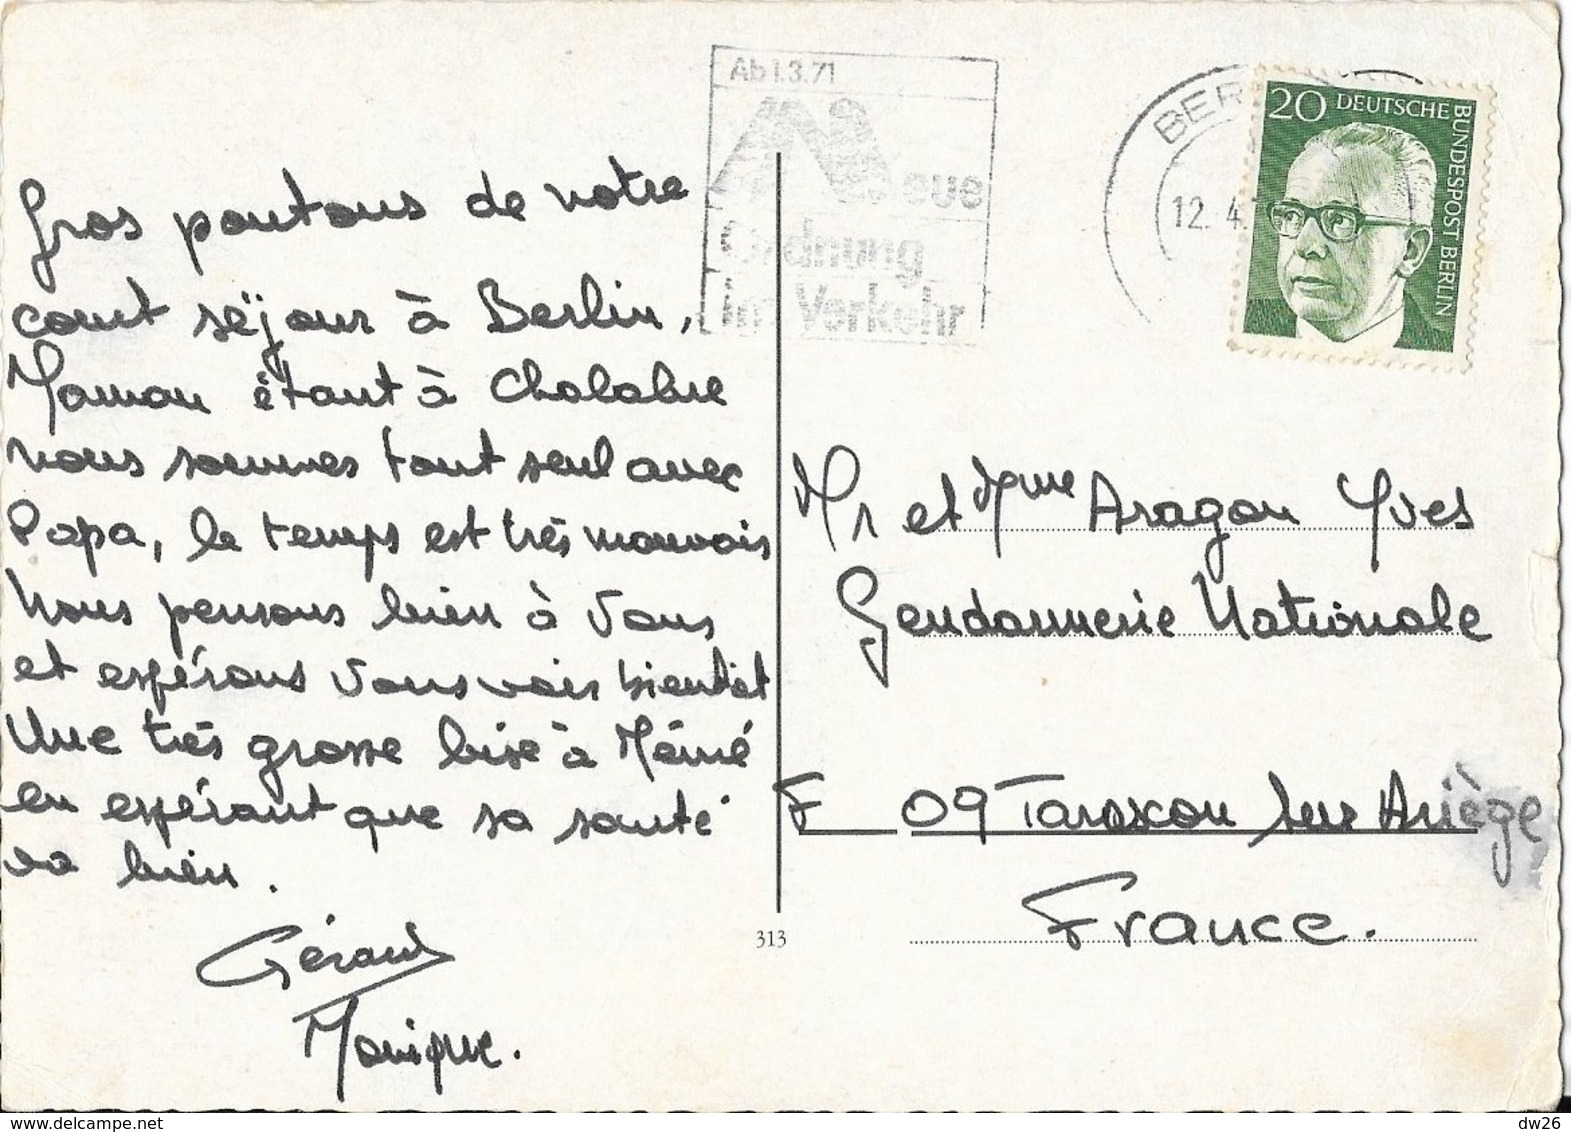 Ab 1.3.71
Neue
Ordnung
im Verkehr
BER
12. 4.
20 DEUTSCHE
BUNDESPOST BERLIN
Gros poutous de notre
court séjour à Berlin,
Maman étant à Chalabre
nous sommes tout seul avec
Papa, le temps est très mauvais
Nous pensons bien à vous
et espérons vous voir bientôt
Une très grosse bise à Mémé
en espérant que sa santé
va bien.
Gérard
Monique.
313
Mr et Mme Aragon Yves
Gendarmerie Nationale
F 09 Tarascon sur Ariège
France.
dw26